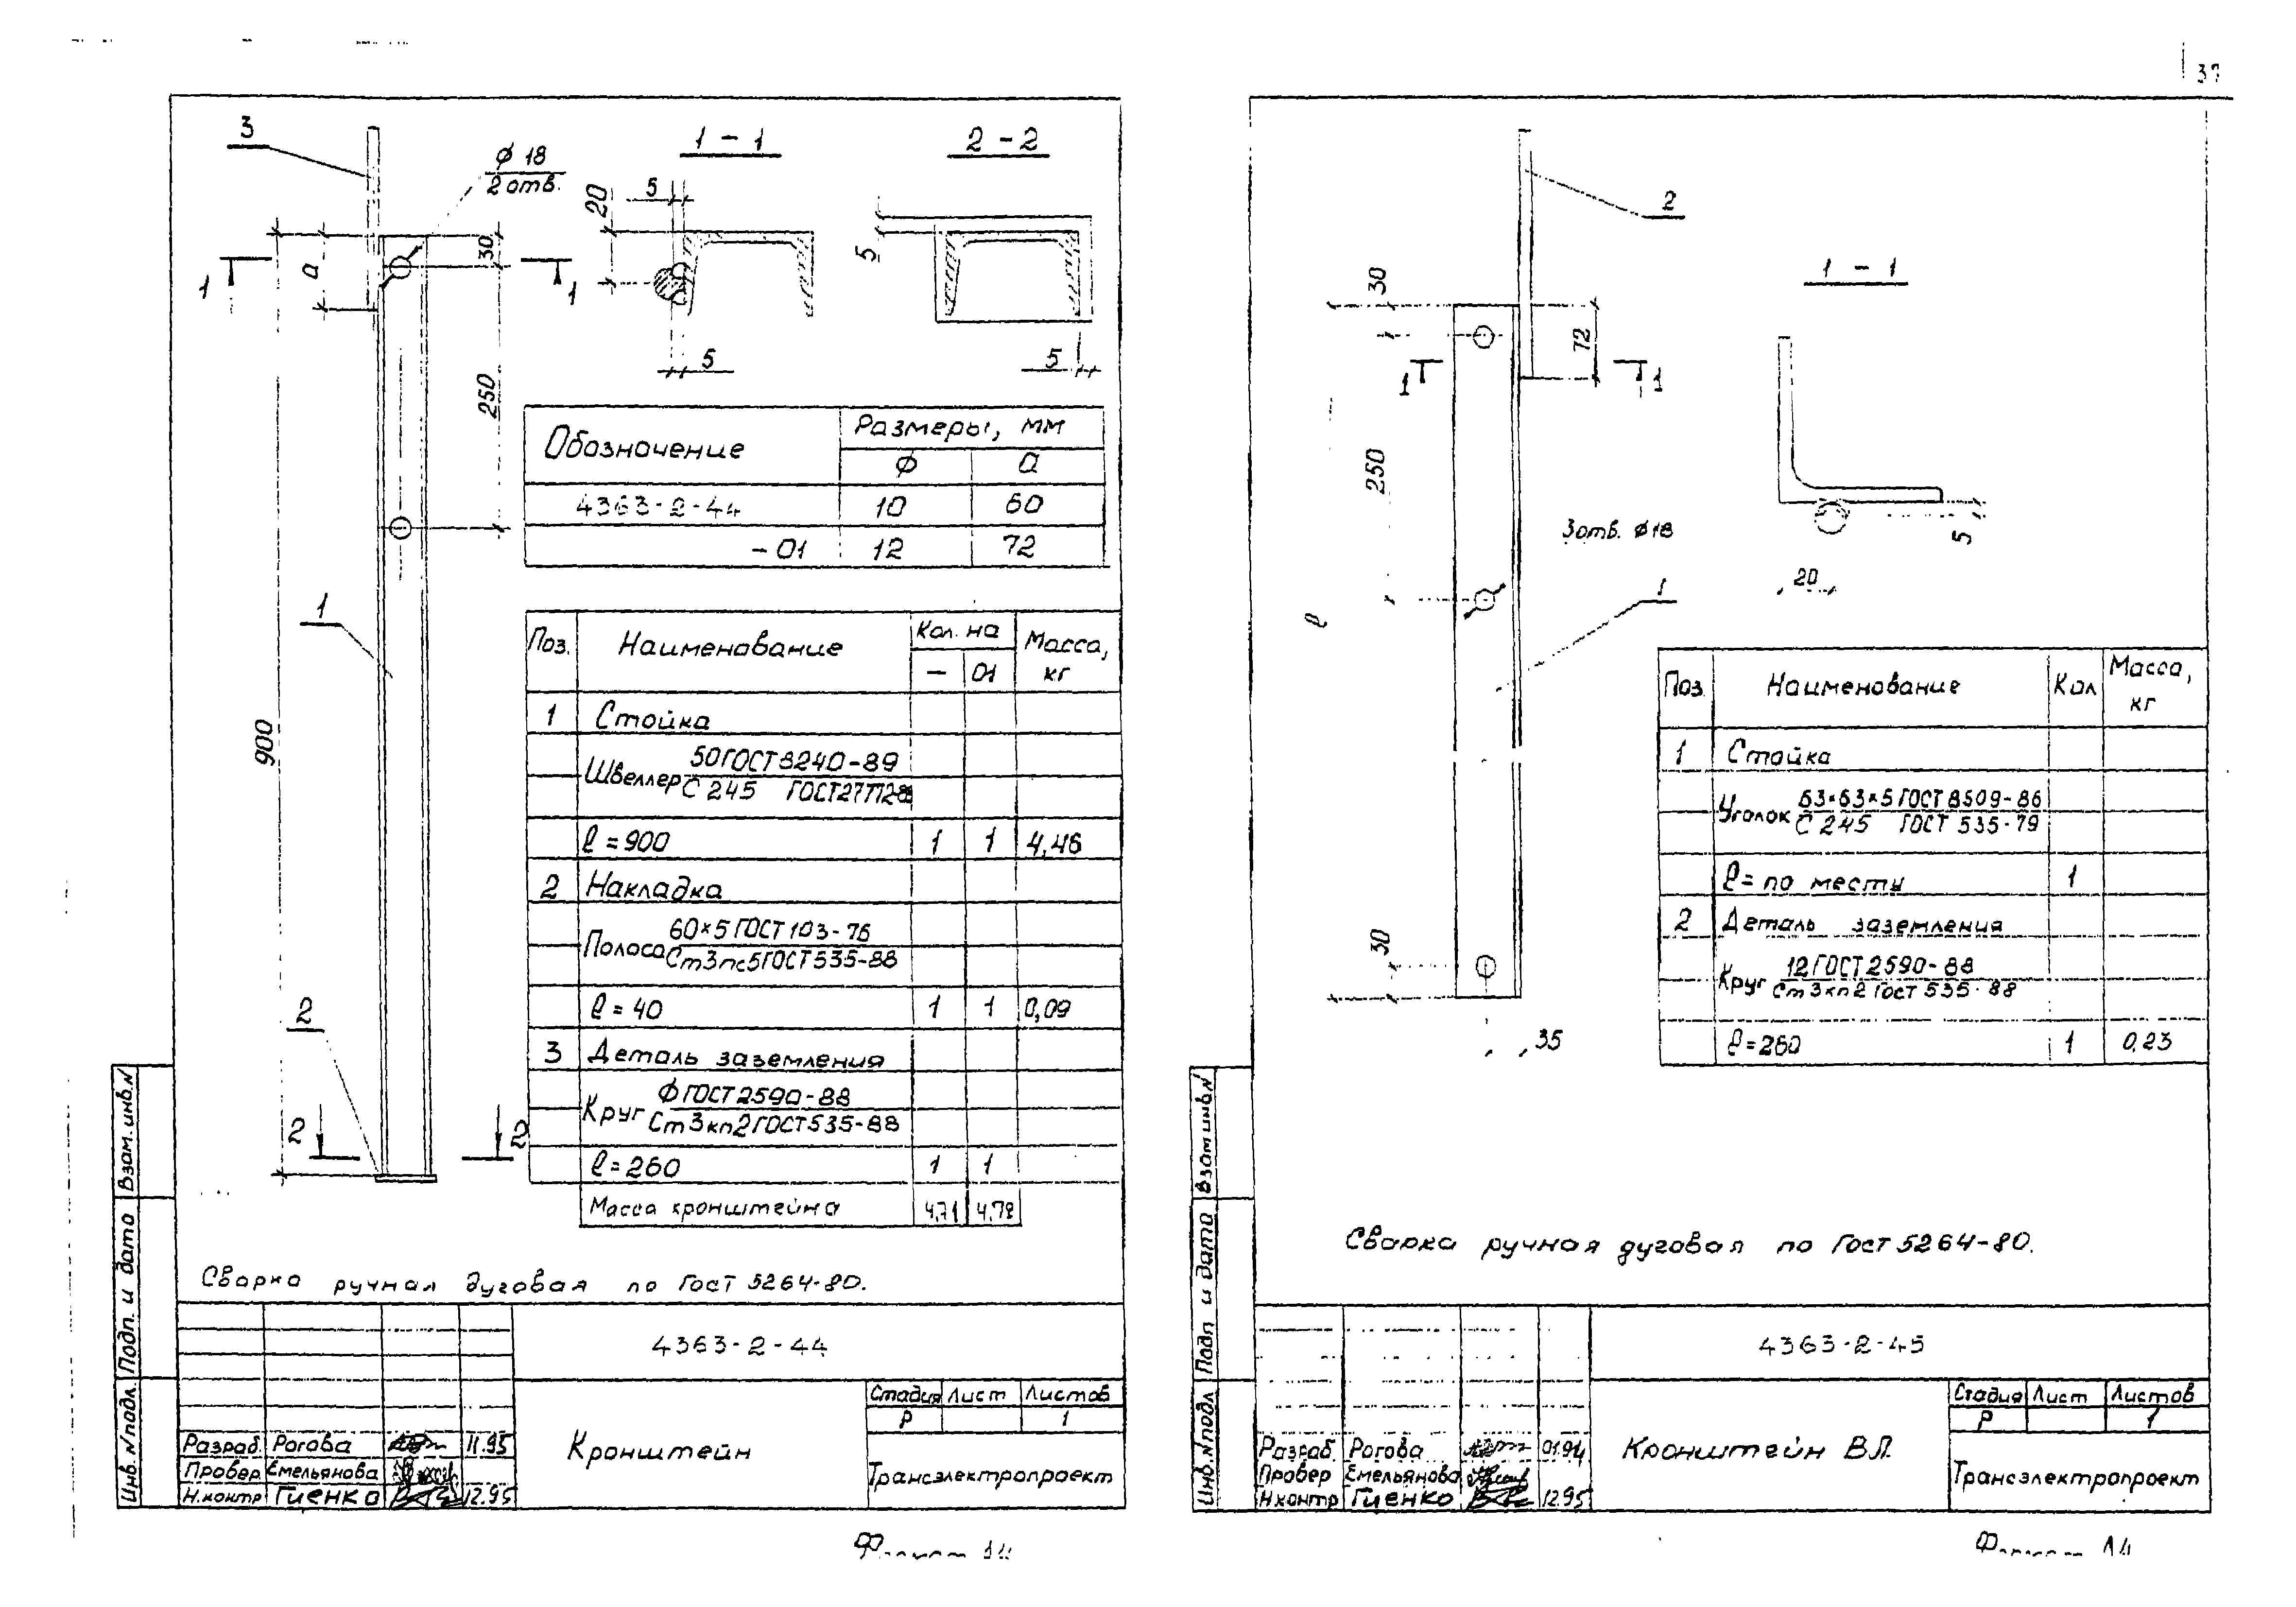 37
3
Ф 18
2 отв.
1 - 1
2 - 2
20
5
30
а
1
1
5
5
5
250
Обозначение
Размеры, мм
Ф
а
4363-2-44
10
60
-01
12
72
1
900
Поз.
Наименование
Кол. на
Масса, кг
—
01
1
Стойка
Швеллер
50 ГОСТ 8240-89
С 245 ГОСТ 27772-88
ℓ = 900
1
1
4,46
2
Накладка
Полоса
60×5 ГОСТ 103-76
Ст3пс5 ГОСТ 535-88
ℓ = 40
1
1
0,09
3
Деталь заземления
Круг
Ф ГОСТ 2590-88
Ст3кп2 ГОСТ 535-88
ℓ = 260
1
1
Масса кронштейна
4,71
4,78
2
2
2
Сварка ручная дуговая по Гост 5264-80.
4363-2-44
Кронштейн
Стадия
Лист
Листов
Р
1
Трансэлектропроект
Разраб.
Рогова
11.95
Провер
Емельянова
Н.контр
Гиенко
12.95
Взам.инв.N
Подп. и дата
Инв.Nподл.
2
1 - 1
30
72
1
1
250
3 отв. Ф18
ℓ
1
5
20
30
35
Поз.
Наименование
Кол
Масса, кг
1
Стойка
Уголок
63×63×5 ГОСТ 8509-86
С 245 ГОСТ 535-79
ℓ = по месту
1
2
Деталь заземления
Круг
12 ГОСТ 2590-88
Ст3кп2 Гост 535-88
ℓ = 260
1
0,23
Сварка ручная дуговая по Гост 5264-80.
4363-2-45
Кронштейн ВЛ.
Стадия
Лист
Листов
Р
1
Трансэлектропроект
Разраб.
Рогова
01.94
Провер
Емельянова
Н.контр
Гиенко
12.95
Взам инв.N
Подп и дата
Инв.Nподл